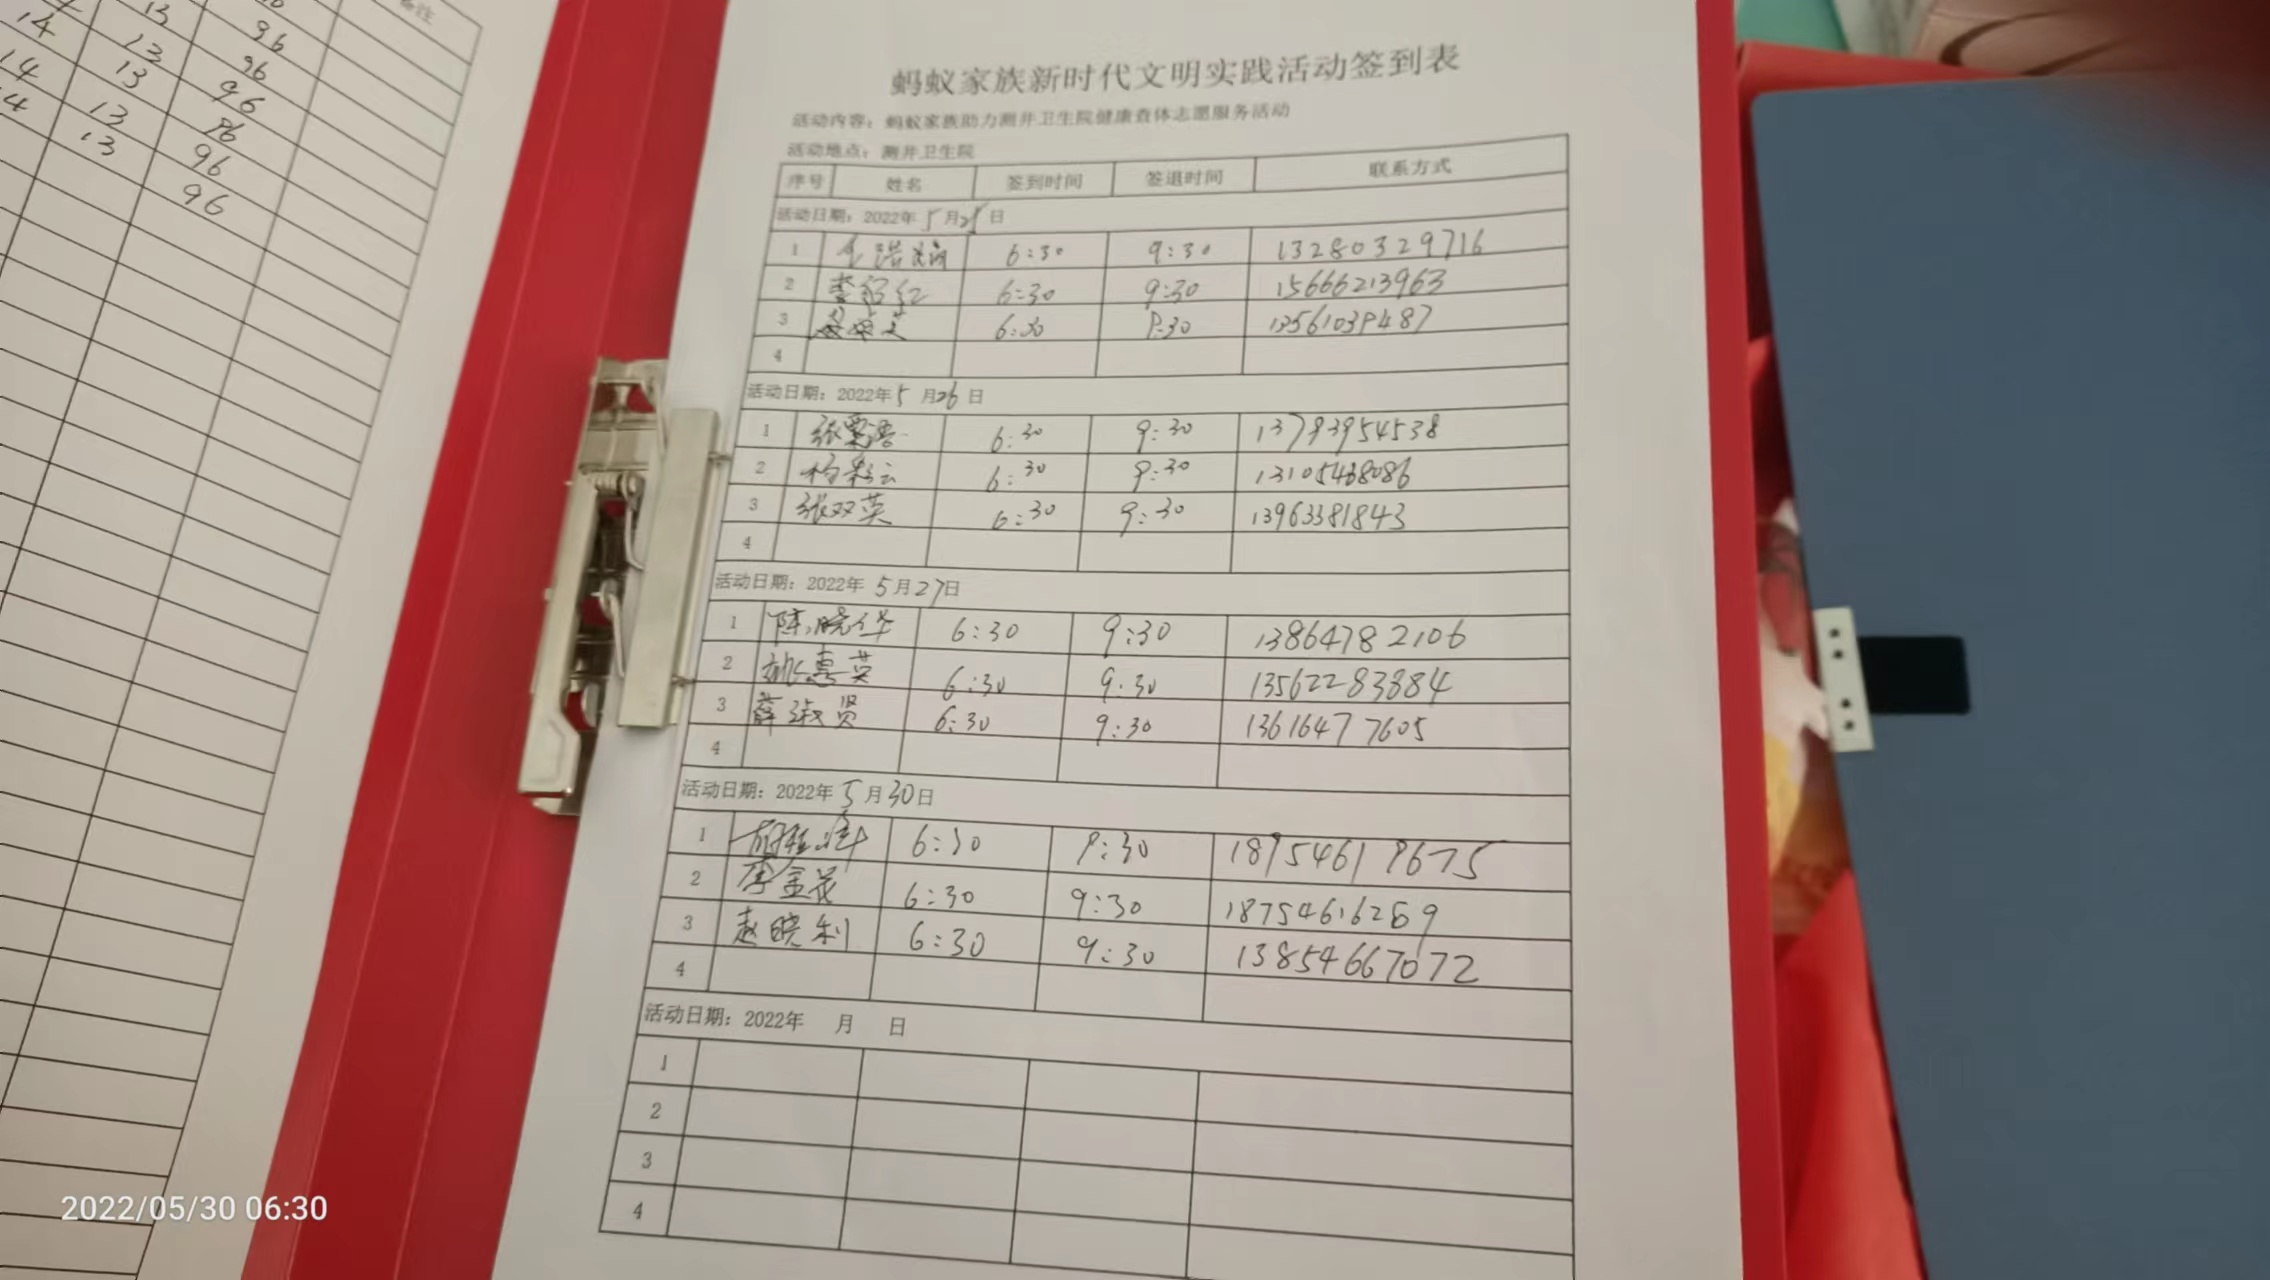 备注
14 13
14 13 96
14 13 96
13 96
13 96
96
96
蚂蚁家族新时代文明实践活动签到表
活动内容：蚂蚁家族助力测井卫生院健康查体志愿服务活动
活动地点：测井卫生院
序号 姓名 签到时间 签退时间 联系方式
活动日期：2022年5月25日
1 6:30 9:30 13280329716
2 6:30 9:30 15666213963
3 6:30 9:30 13561039487
4
活动日期：2022年5月26日
1 6:30 9:30 13793954538
2 杨彩云 6:30 9:30 13105468086
3 张双英 6:30 9:30 13963381843
4
活动日期：2022年5月27日
1 陈晓华 6:30 9:30 13864782106
2 姚惠英 6:30 9:30 13562283884
3 薛淑贤 6:30 9:30 13616477605
4
活动日期：2022年5月30日
1 6:30 9:30 18954619675
2 李金花 6:30 9:30 18754616269
3 赵晓利 6:30 9:30 13854667072
4
活动日期：2022年 月 日
1
2
3
4
2022/05/30 06:30